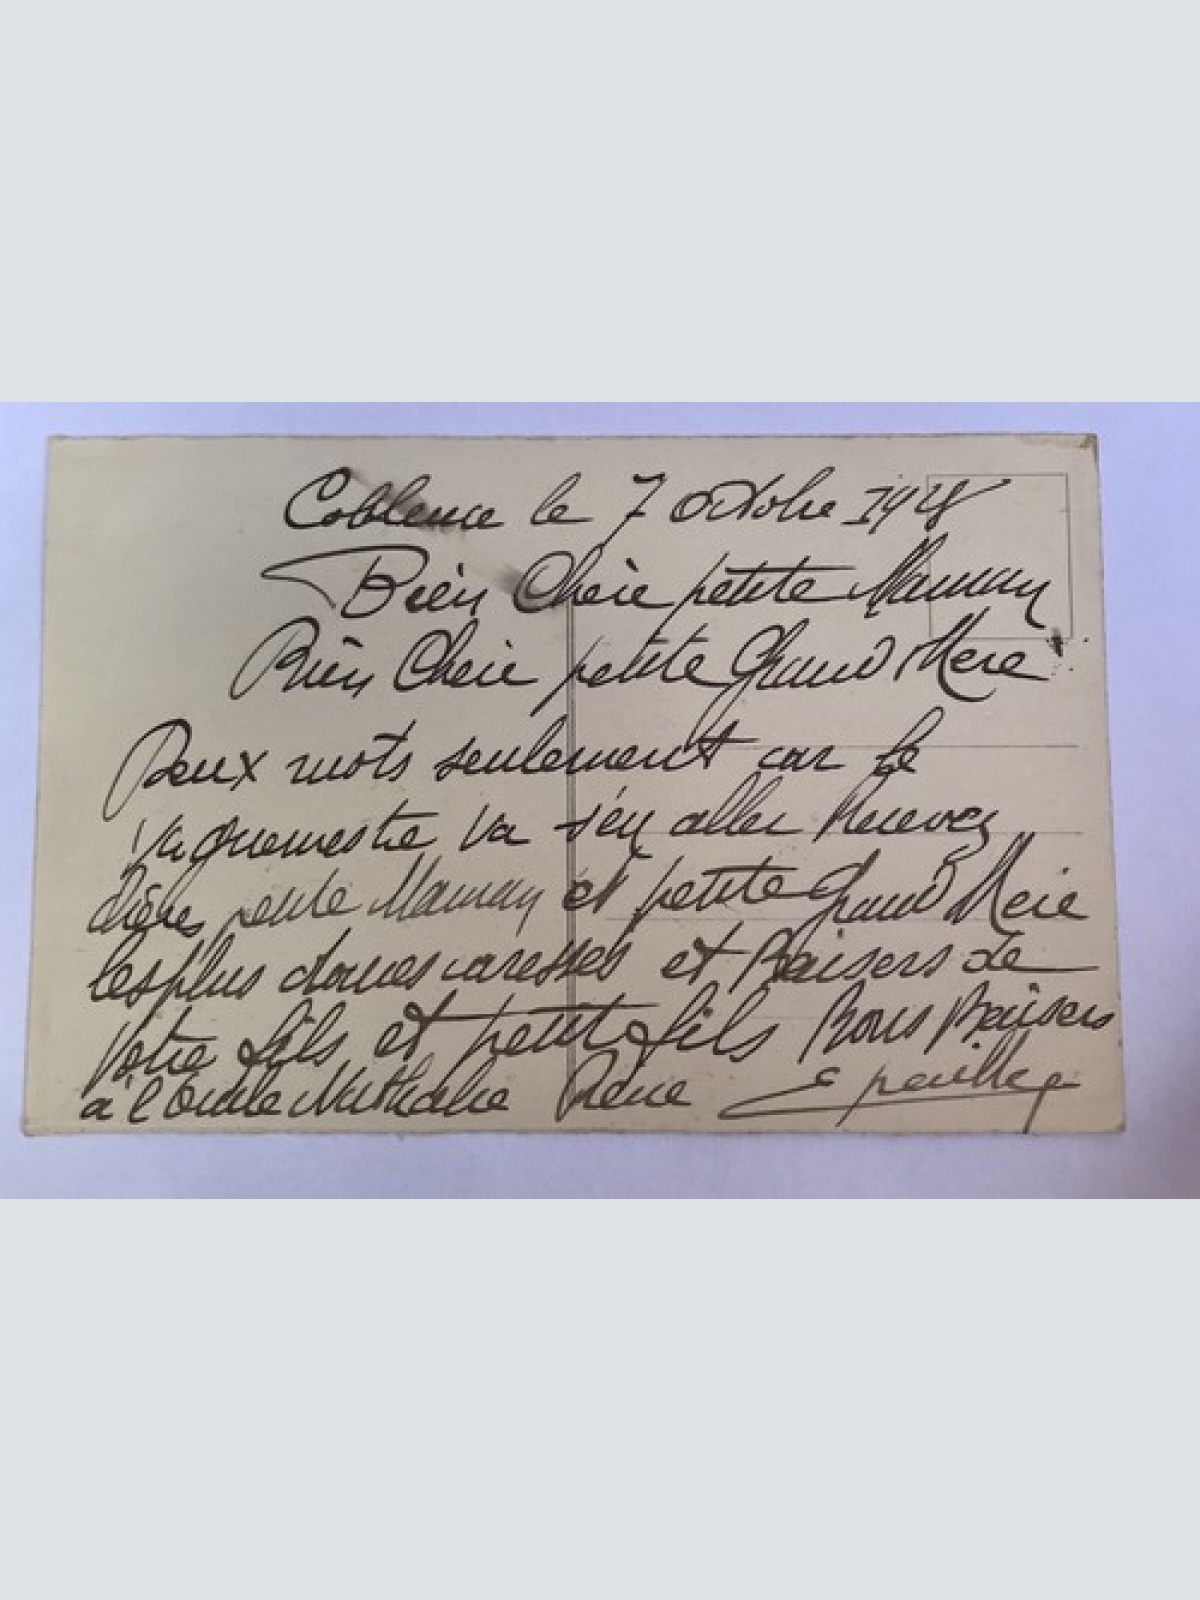 Coblence le 7 octobre 1928
Bien Chère petite Maman
Bien Chere petite Grand Mere
Deux mots seulement car le
Vaguemestre va s'en aller Recevez
Chères petite Maman et petite Grand Mere
les plus douces caresses et Baisers de
Votre fils et petit fils Bons Baisers
à l'Oncle Réné